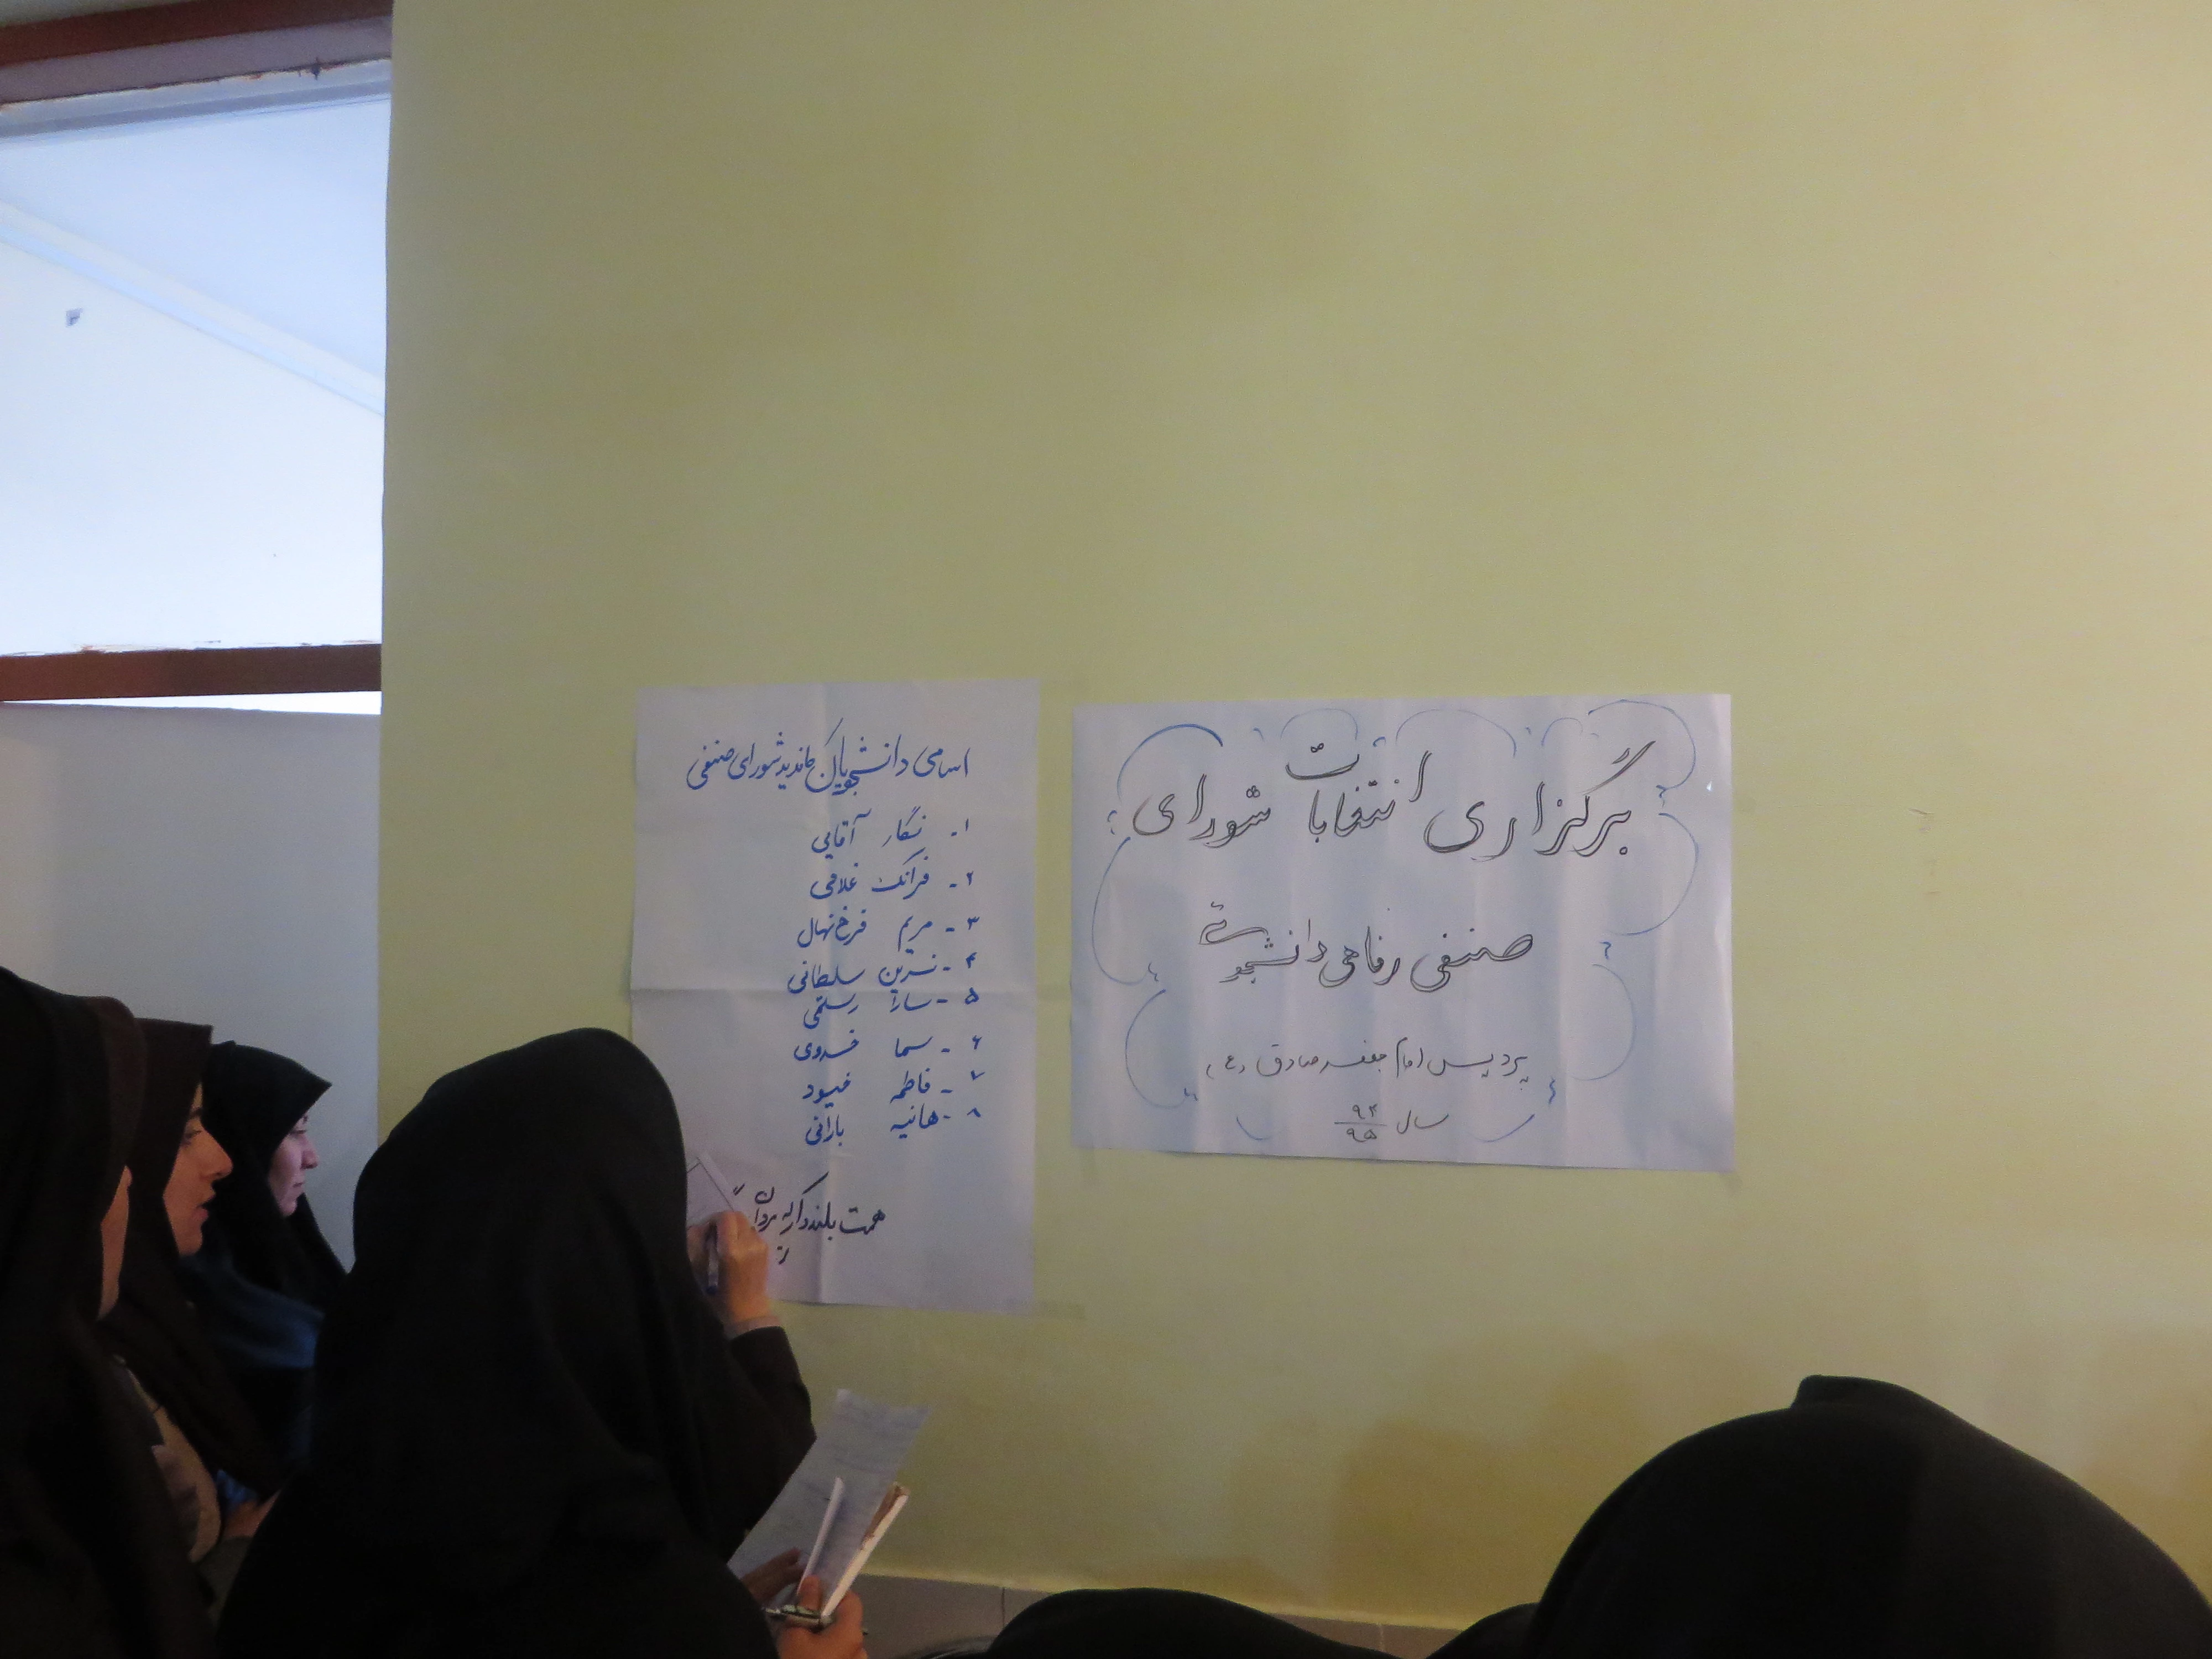 برگزاری انتخابات شورای
صنفی رفاهی دانشجوئی
پردیس امام جعفر صادق (ع)
سال ۹۴
۹۵
اسامی دانشجویان کاندید شورای صنفی
۱- نگار آقایی
۲- فرانک غلامی
۳- مریم فرخ نهال
۴- نسرین سلطانی
۵- سارا رستمی
۶- سما خسروی
۷- فاطمه
۸- هانیه بارانی
همت بلند دار که مردان